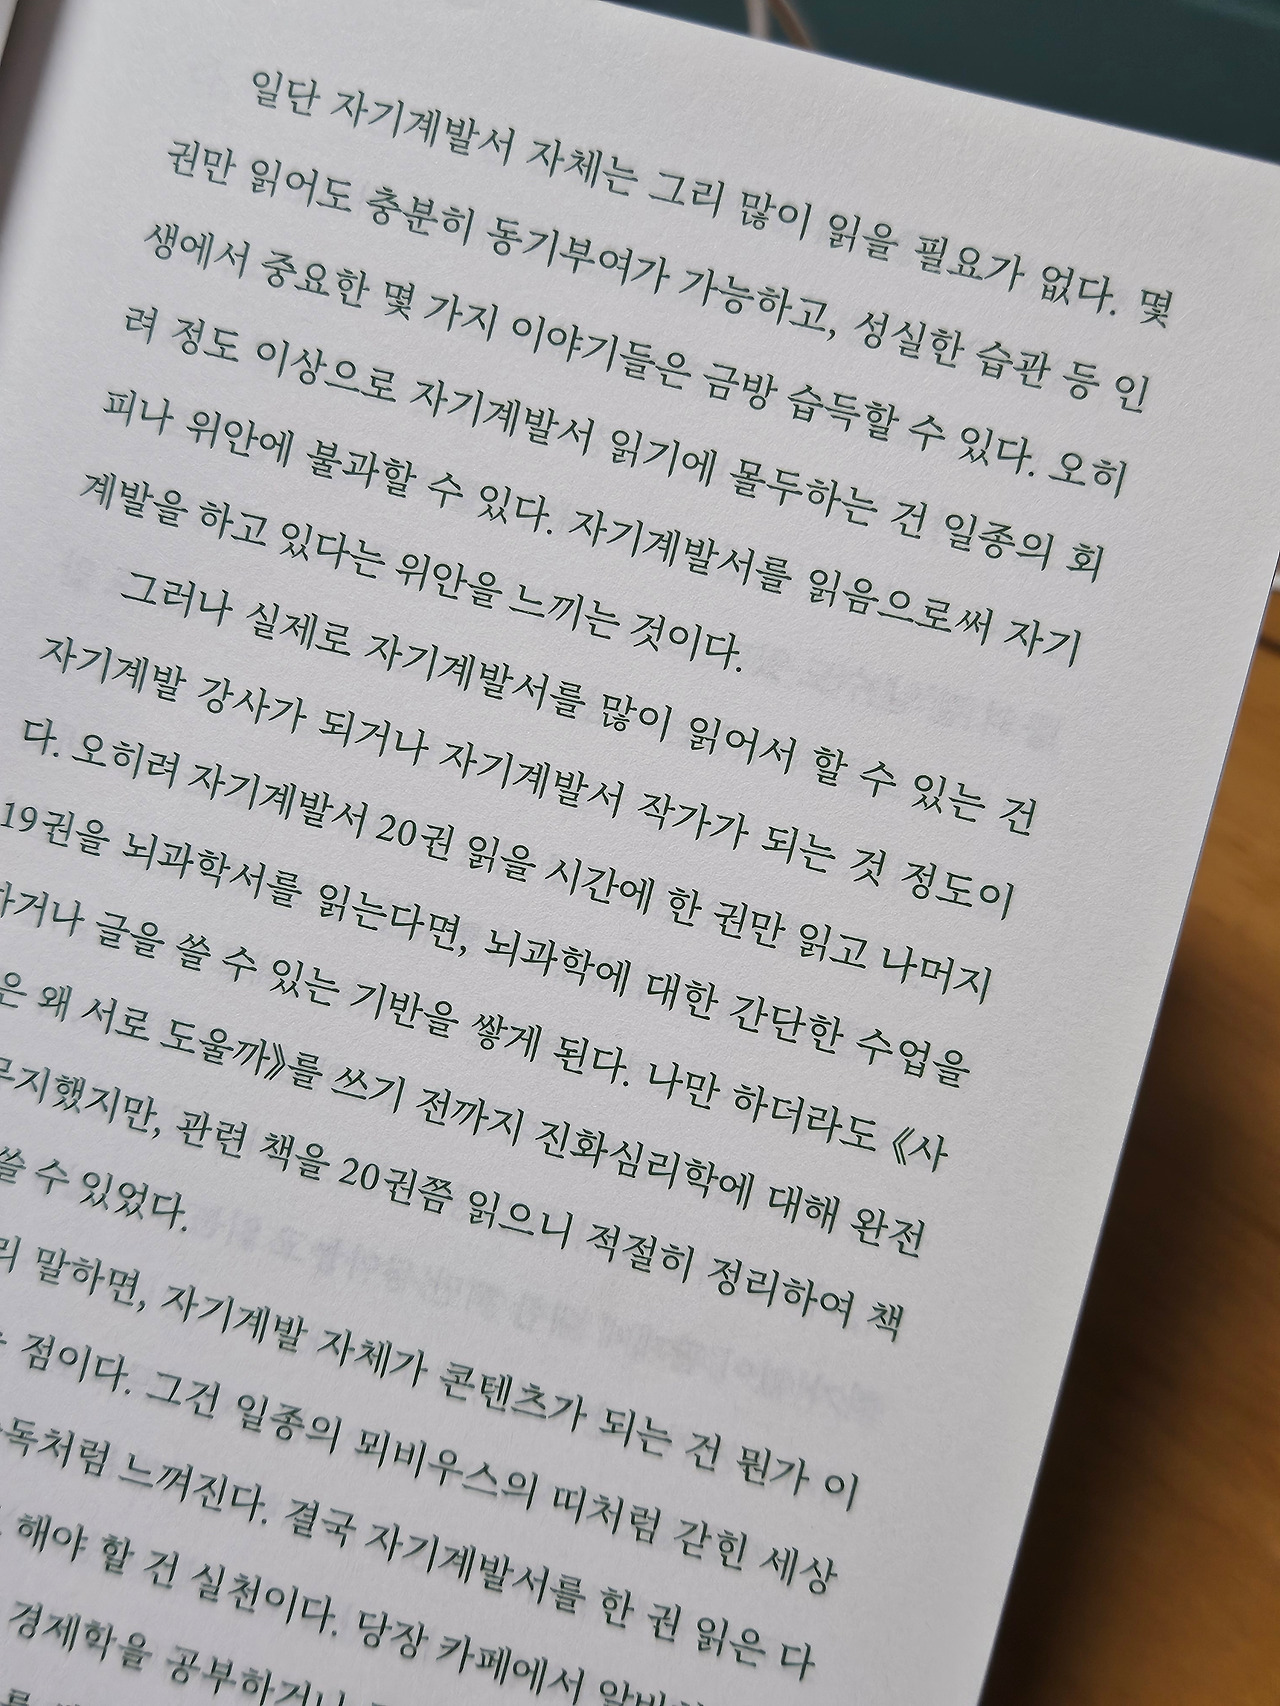 일단 자기계발서 자체는 그리 많이 읽을 필요가 없다. 몇
권만 읽어도 충분히 동기부여가 가능하고, 성실한 습관 등 인
생에서 중요한 몇 가지 이야기들은 금방 습득할 수 있다. 오히
려 정도 이상으로 자기계발서 읽기에 몰두하는 건 일종의 회
피나 위안에 불과할 수 있다. 자기계발서를 읽음으로써 자기
계발을 하고 있다는 위안을 느끼는 것이다.
그러나 실제로 자기계발서를 많이 읽어서 할 수 있는 건
자기계발 강사가 되거나 자기계발서 작가가 되는 것 정도이
다. 오히려 자기계발서 20권 읽을 시간에 한 권만 읽고 나머지
19권을 뇌과학서를 읽는다면, 뇌과학에 대한 간단한 수업을
하거나 글을 쓸 수 있는 기반을 쌓게 된다. 나만 하더라도 《사
은 왜 서로 도울까》를 쓰기 전까지 진화심리학에 대해 완전
무지했지만, 관련 책을 20권쯤 읽으니 적절히 정리하여 책
쓸 수 있었다.
말하면, 자기계발 자체가 콘텐츠가 되는 건 뭔가 이
점이다. 그건 일종의 뫼비우스의 띠처럼 갇힌 세상
독처럼 느껴진다. 결국 자기계발서를 한 권 읽은 다
해야 할 건 실천이다. 당장 카페에서
경제학을 공부하거나